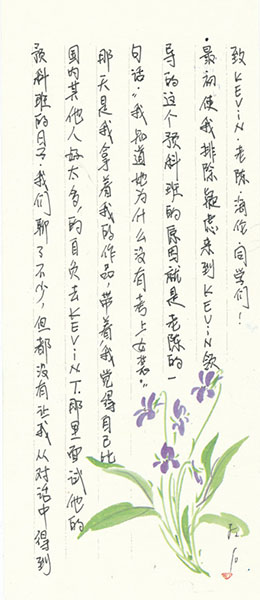 致KEVIN.老陈.海伦.同学们!
最初使我排除疑虑来到KEVIN领
导的这个预科班的原因就是老陈的一
句话:"我知道她为什么没有考上女装。"
那天是我拿着我的作品,带着我觉得自己比
国内其他人好太多的自负去KEVIN T.那里面试他的
预科班的日子,我们聊了不少,但都没有让我从对话中得到